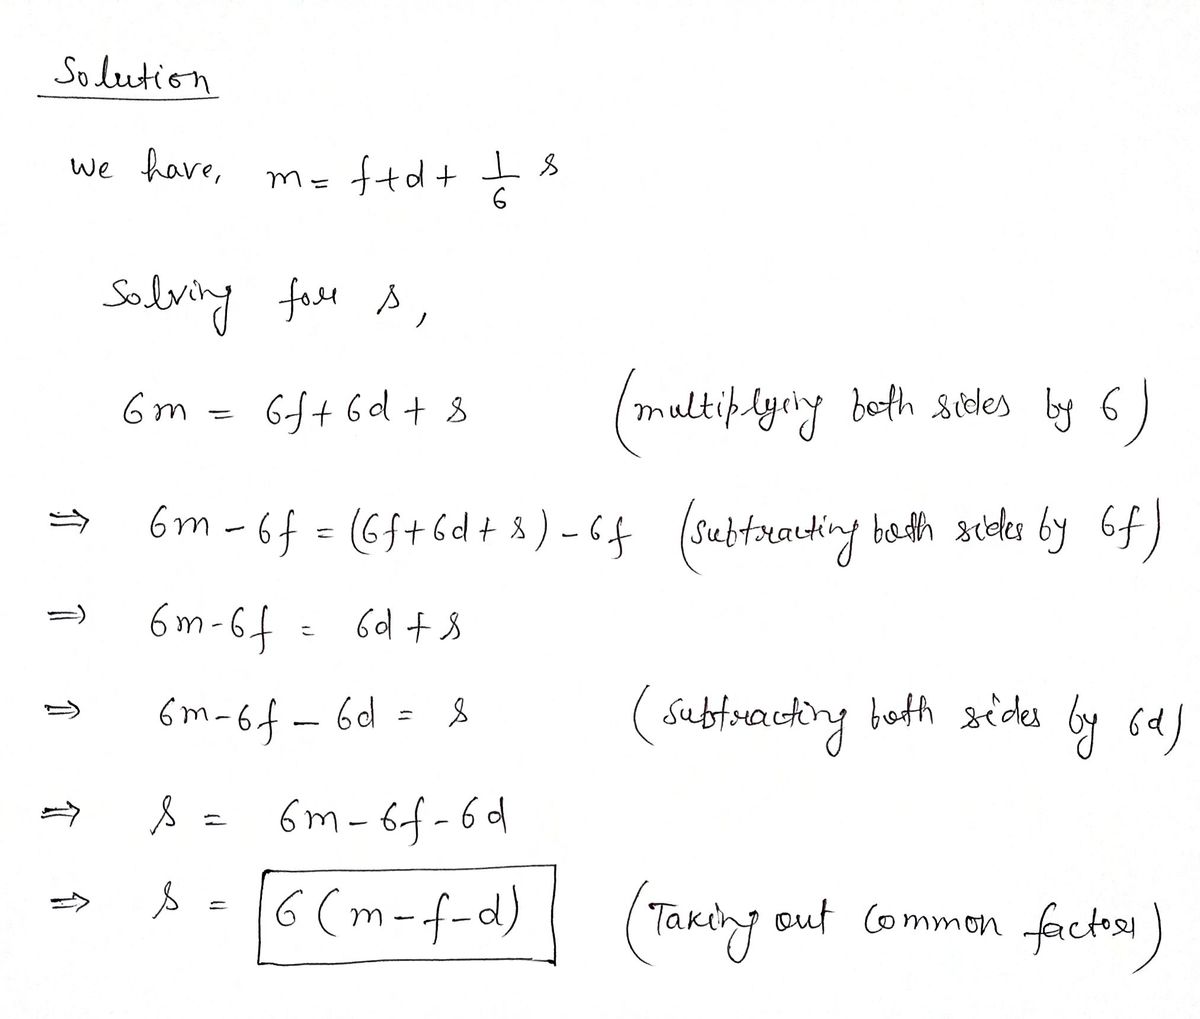 Solution
we have, m = f+d+ 1/6 s
Solving for s,
6m = 6f+6d+s (multiplying both sides by 6)
⇒ 6m-6f = (6f+6d+s)-6f (subtracting both sides by 6f)
⇒ 6m-6f = 6d+s
⇒ 6m-6f-6d = s (subtracting both sides by 6d)
⇒ s = 6m-6f-6d
⇒ s = 6(m-f-d) (Taking out common factor)